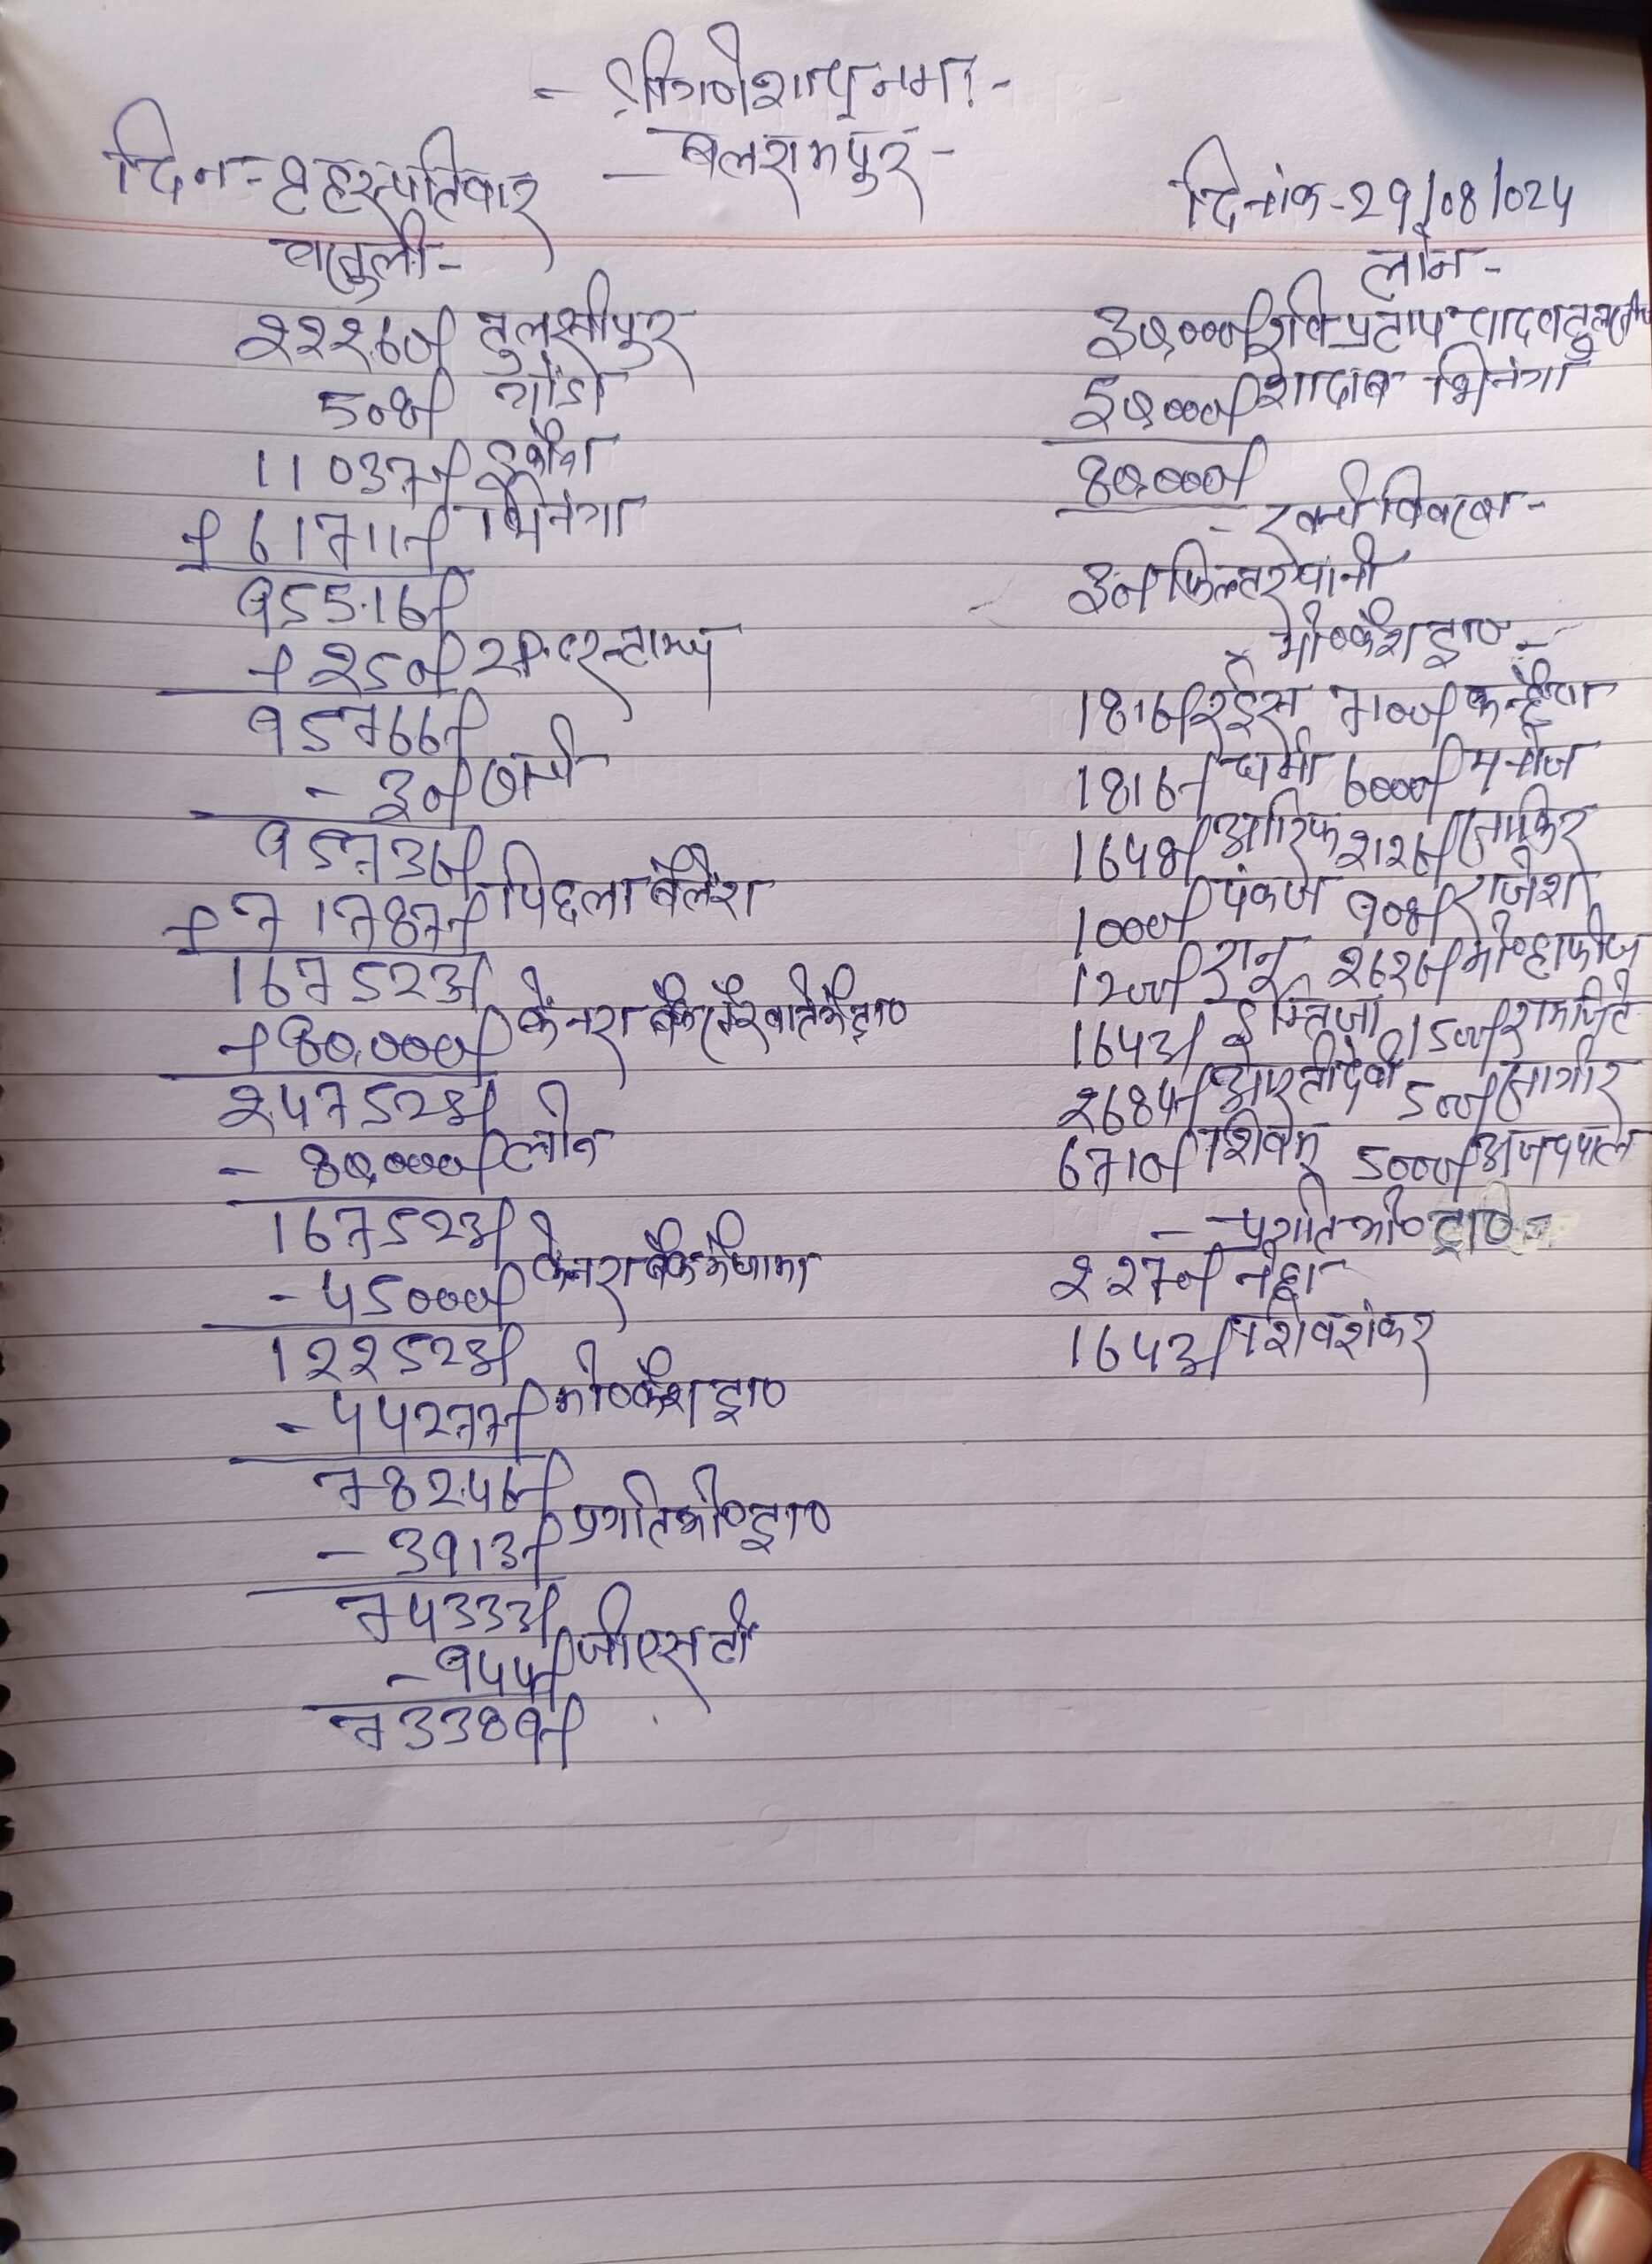 - श्री गणेशाय नमः -
- बलरामपुर -
दिन - बृहस्पतिवार
दिनांक - 29/08/024
वसूली -
22260/ तुलसीपुर
508/ गोंडा
11037/ इकौना
+ 61711/ भिनगा
95516/
+ 250/ स्टाम्प
95766/
- 30/ खर्च
95736/
+ 71787/ पिछला बैलेंस
167523/
+ 80,000/ केनरा बैंक
247523/
- 80,000/ लोन
167523/
- 45000/ केनरा बैंक में जमा
122523/
- 44277/ मो० कैश ट्रा०
78246/
- 3913/ प्रगति मो० ट्रा०
74333/
- 944/ जीएसटी
73389/
लोन -
30,000/ रवि प्रताप यादव
50,000/ शादाब भिनगा
80,000/
- खर्च विवरण -
30/ फिल्टर पानी
× मो० कैश ट्रा० -
1816/ रईस 7100/ कन्हैया
1816/ धर्मा 6000/ मनोज
1648/ आरिफ 2126/
1000/ पंकज 908/ राजेश
1200/ रानू 2626/ मो० हाफीज
1643/ 1500/
2684/ आरती देवी 500/
6710/ शिवम् 5000/ अजयपाल
- प्रगति मो० ट्रा० -
2270/ नेहा
1643/ शिवशंकर